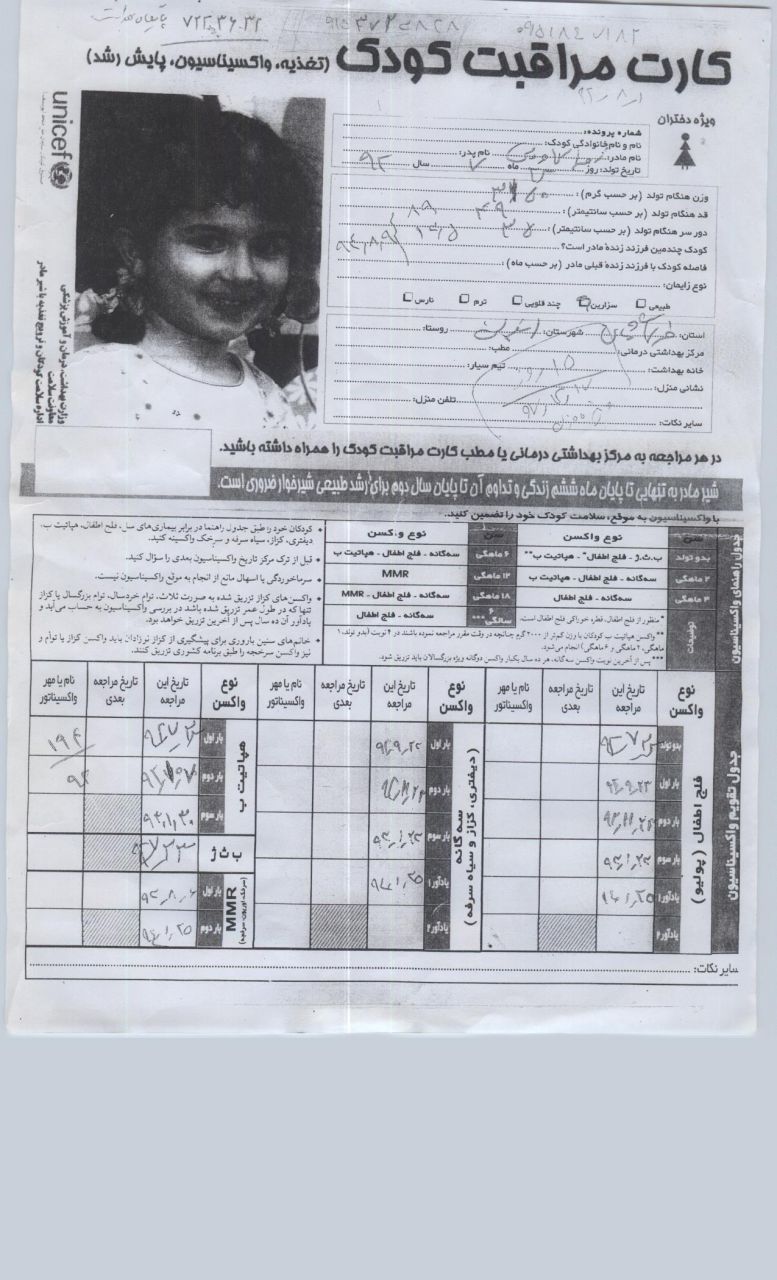 ۷۲۲۳۶۰۳۲
کارت مراقبت کودک (تغذیه، واکسیناسیون، پایش رشد)
unicef
ویژه دختران
شماره پرونده:
نام و نام‌خانوادگی کودک:
نام مادر: نام پدر:
تاریخ تولد: روز ماه ۷ سال ۹۲
وزن هنگام تولد (بر حسب گرم):
قد هنگام تولد (بر حسب سانتیمتر): ۴۹
دور سر هنگام تولد (بر حسب سانتیمتر):
کودک چندمین فرزند زندهٔ مادر است؟
فاصله کودک با فرزند زندهٔ قبلی مادر (بر حسب ماه):
نوع زایمان:
طبیعی سزارین چند قلویی ترم نارس
استان: شهرستان: روستا:
مرکز بهداشتی درمانی: مطب:
خانه بهداشت: تیم سیار:
نشانی منزل:
تلفن منزل:
سایر نکات:
وزارت بهداشت، درمان و آموزش پزشکی
معاونت سلامت
اداره سلامت کودکان و ترویج تغذیه با شیر مادر
در هر مراجعه به مرکز بهداشتی درمانی یا مطب کارت مراقبت کودک را همراه داشته باشید.
شیر مادر به تنهایی تا پایان ماه ششم زندگی و تداوم آن تا پایان سال دوم برای رشد طبیعی شیرخوار ضروری است.
با واکسیناسیون به موقع، سلامت کودک خود را تضمین کنید.
جدول راهنمای واکسیناسیون
سن نوع واکسن سن نوع واکسن
بدو تولد ب.ث.ژ - فلج اطفال* - هپاتیت ب** ۶ ماهگی سه‌گانه - فلج اطفال - هپاتیت ب
۲ ماهگی سه‌گانه - فلج اطفال - هپاتیت ب ۱۲ ماهگی MMR
۴ ماهگی سه‌گانه - فلج اطفال ۱۸ ماهگی سه‌گانه - فلج اطفال - MMR
۶ سالگی *** سه‌گانه - فلج اطفال
توضیحات
* منظور از فلج اطفال، قطره خوراکی فلج اطفال است.
** واکسن هپاتیت ب کودکان با وزن کمتر از ۲۰۰۰ گرم چنانچه در وقت مقرر مراجعه نموده باشند در ۴ نوبت (بدو تولد، ۱
ماهگی، ۲ ماهگی و ۶ ماهگی) انجام می‌شود.
*** پس از آخرین نوبت واکسن سه‌گانه، هر ده سال یکبار واکسن دوگانه ویژه بزرگسالان باید تزریق شود.
• کودکان خود را طبق جدول راهنما در برابر بیماری‌های سل، فلج اطفال، هپاتیت ب،
دیفتری، کزاز، سیاه سرفه و سرخک واکسینه کنید.
• قبل از ترک مرکز تاریخ واکسیناسیون بعدی را سؤال کنید.
• سرماخوردگی یا اسهال مانع از انجام به موقع واکسیناسیون نیست.
• واکسن‌های کزاز تزریق شده به صورت ثلاث، توام خردسال، توام بزرگسال یا کزاز
تنها که در طول عمر تزریق شده باشد در بررسی واکسیناسیون به حساب می‌آید و
یادآور آن ده سال پس از آخرین تزریق خواهد بود.
• خانم‌های سنین باروری برای پیشگیری از کزاز نوزادان باید واکسن کزاز یا توأم و
نیز واکسن سرخجه را طبق برنامه کشوری تزریق کنند.
جدول تقویم واکسیناسیون
نوع واکسن تاریخ این مراجعه تاریخ مراجعه بعدی نام یا مهر واکسیناتور
فلج اطفال (پولیو)
بدو تولد
بار اول ۹۲/۹/۲۳
بار دوم
بار سوم ۹۳/۱/۲۳
یادآور۱ ۹۴/۱/۲۵
یادآور۲
نوع واکسن تاریخ این مراجعه تاریخ مراجعه بعدی نام یا مهر واکسیناتور
سه گانه (دیفتری، کزاز و سیاه سرفه)
بار اول
بار دوم
بار سوم ۹۳/۱/۲۳
یادآور۱ ۹۴/۱/۲۵
یادآور۲
نوع واکسن تاریخ این مراجعه تاریخ مراجعه بعدی نام یا مهر واکسیناتور
هپاتیت ب
بار اول ۱۹۴
بار دوم ۹۲
بار سوم ۹۳/۱/۳۰
ب ث ژ
MMR (سرخک، اوریون، سرخجه)
بار اول ۹۳/۸/۶
بار دوم ۹۴/۱/۲۵
سایر نکات: